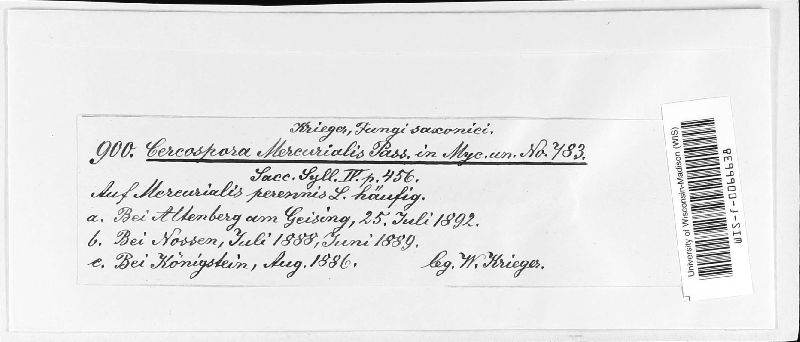 Krieger, Fungi saxonici.
900. Cercospora Mercurialis Pass. in Myc. un. No. 783.
Sacc. Syll. IV. p. 456.
Auf Mercurialis perennis L. häufig.
a. Bei Altenberg am Geising, 25. Juli 1892.
b. Bei Nossen, Juli 1888, Juni 1889.
c. Bei Königstein, Aug. 1886. leg. W. Krieger.
University of Wisconsin-Madison (WIS)
WIS-f-0066638